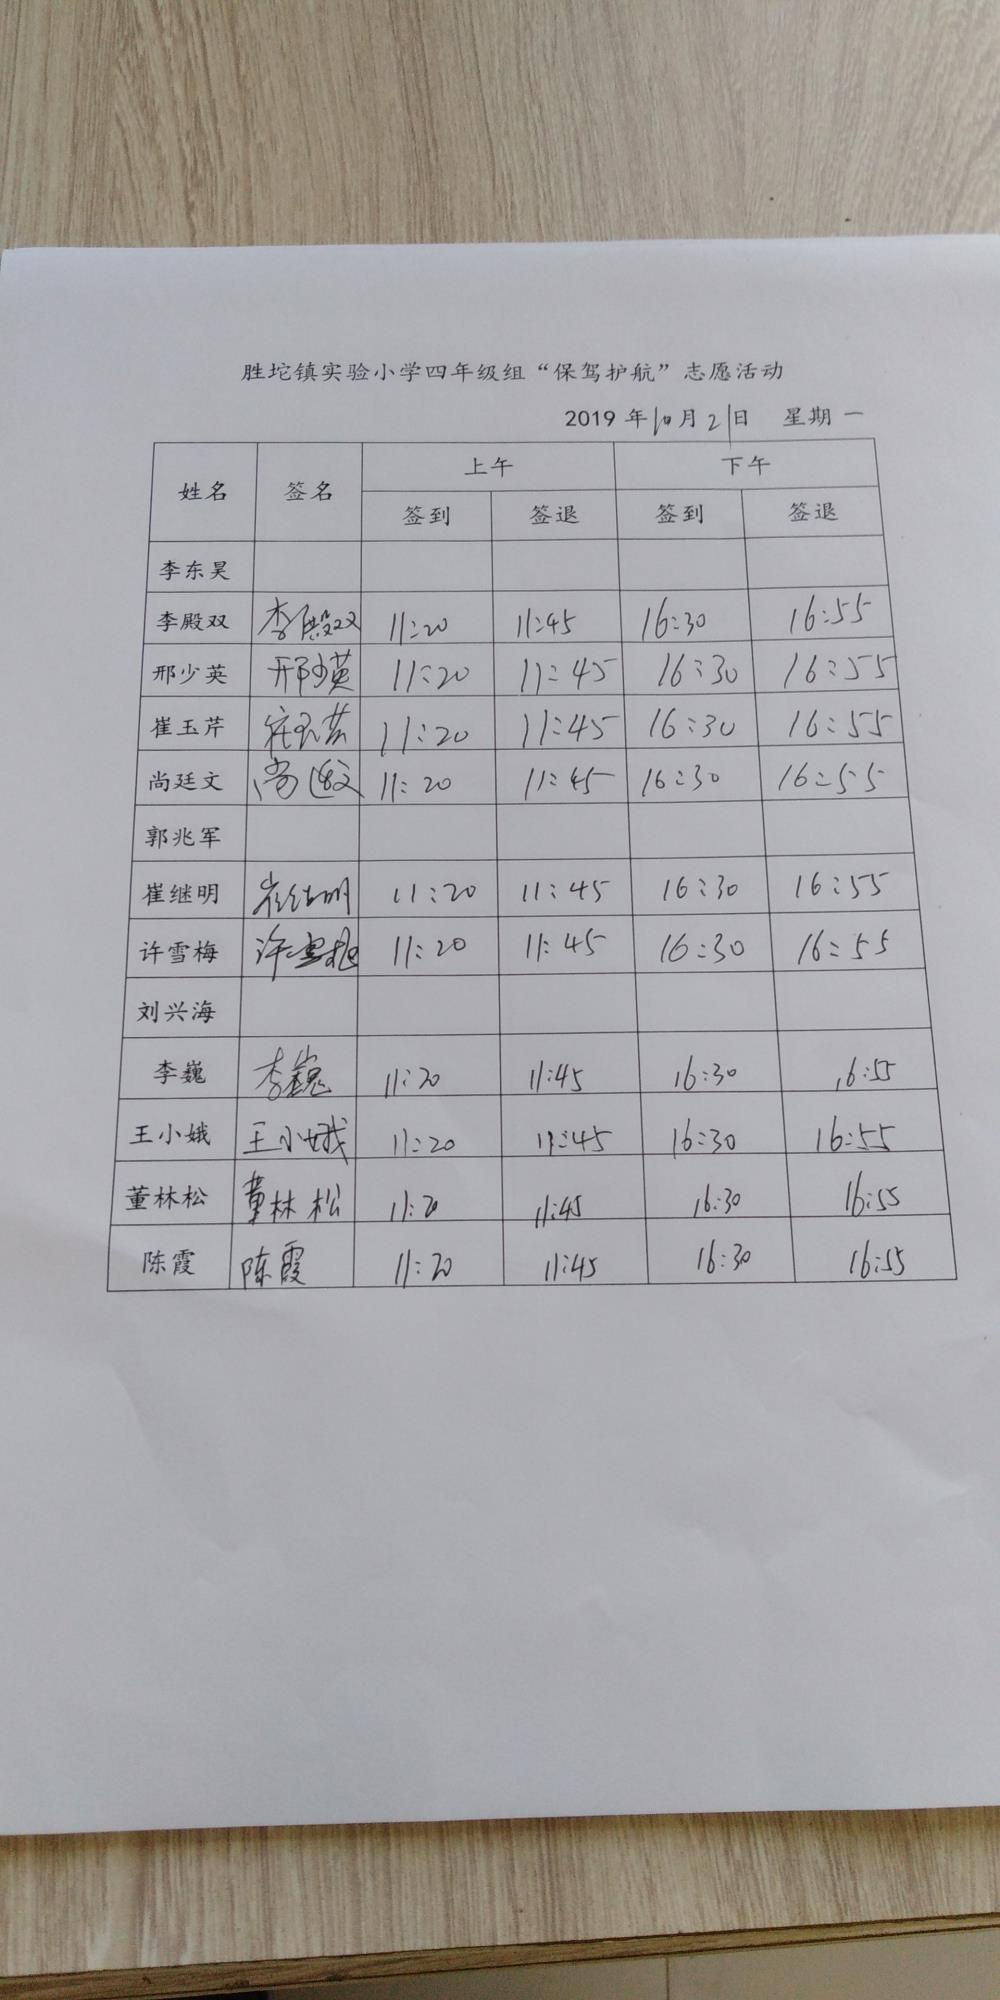 胜坨镇实验小学四年级组“保驾护航”志愿活动
2019 年 10 月 21 日 星期一
姓名 签名 上午 下午
签到 签退 签到 签退
李东昊
李殿双 李殿双 11:20 11:45 16:30 16:55
邢少英 邢少英 11:20 11:45 16:30 16:55
崔玉芹 崔玉芹 11:20 11:45 16:30 16:55
尚廷文 尚廷文 11:20 11:45 16:30 16:55
郭兆军
崔继明 崔继明 11:20 11:45 16:30 16:55
许雪梅 许雪梅 11:20 11:45 16:30 16:55
刘兴海
李巍 李巍 11:20 11:45 16:30 16:55
王小娥 王小娥 11:20 11:45 16:30 16:55
董林松 董林松 11:20 11:45 16:30 16:55
陈霞 陈霞 11:20 11:45 16:30 16:55